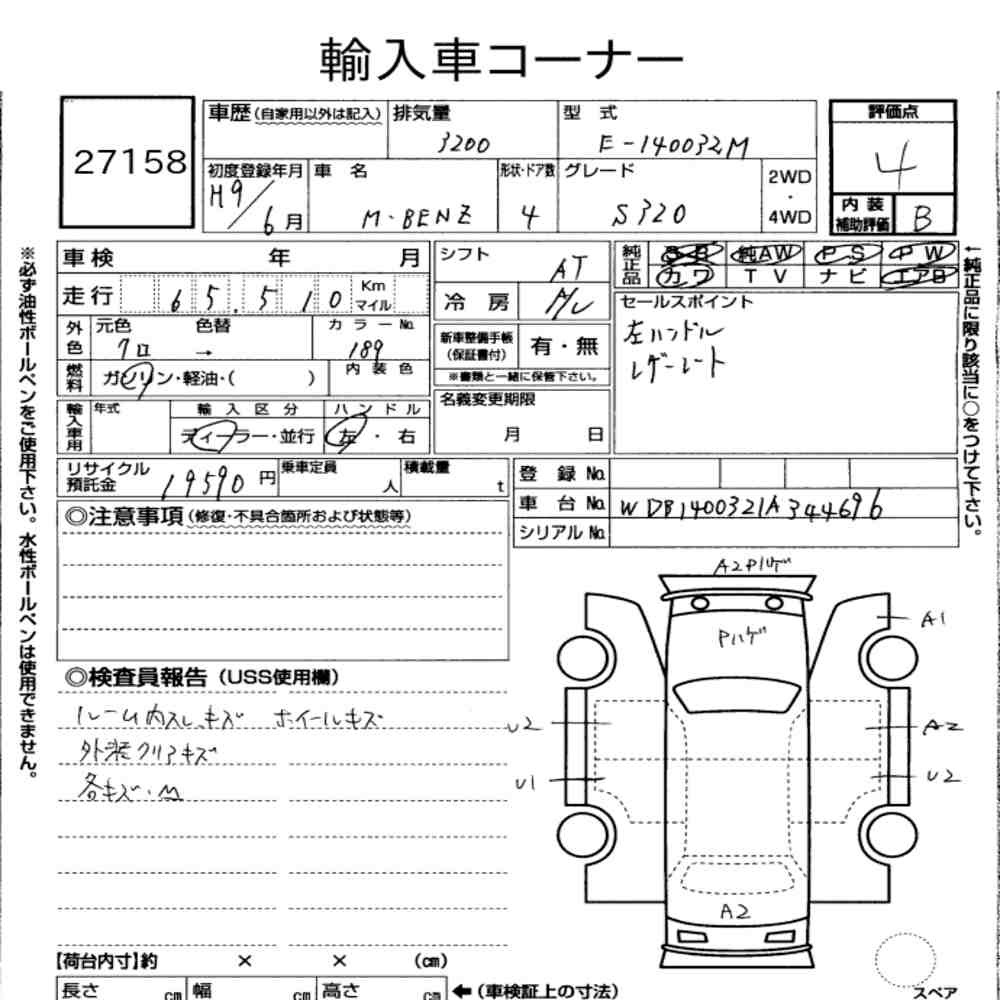 輸入車コーナー
27158
車歴(自家用以外は記入)
排気量
3200
型 式
E-140032M
評価点
4
初度登録年月
H9/6月
車 名
M・BENZ
形状・ドア数
4
グレード
S320
2WD
・
4WD
内装
補助評価
B
※必ず油性ボールペンをご使用下さい。水性ボールペンは使用できません。
車検 年 月
走行 65.510 Km
マイル
外色
元色 色替
クロ →
カラーNo.
189
燃料
ガソリン・軽油・( )
内装色
輸入車用
年式
輸入区分
ディーラー・並行
ハンドル
左・右
シフト
AT
冷房
新車整備手帳
(保証書付)
有・無
※書類と一緒に保管下さい。
名義変更期限
月 日
純正品
SR 純AW PS PW
カワ TV ナビ エアB
セールスポイント
左ハンドル
レザーシート
←純正品に限り該当に○をつけて下さい。
リサイクル
預託金
19590円
乗車定員
人
積載量
t
登録No.
車台No.
WDB1400321A344696
シリアルNo.
◎注意事項(修復・不具合箇所および状態等)
◎検査員報告(USS使用欄)
ルーム内スレキズ ホイールキズ
外装クリアキズ
各キズ・M
A2Pハゲ
Pハゲ
A1
U2
A2
U1
U2
A2
【荷台内寸】約 × × (cm)
長さ cm 幅 cm 高さ cm
←(車検証上の寸法)
スペア